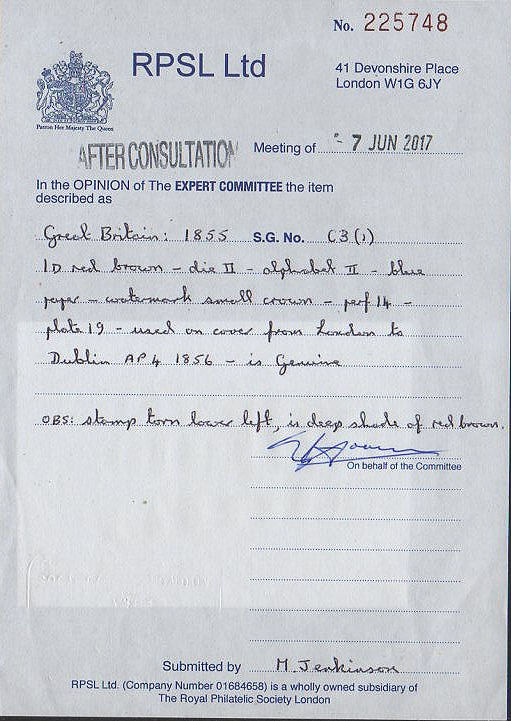 No. 225748
RPSL Ltd
41 Devonshire Place
London W1G 6JY
Patron Her Majesty The Queen
AFTER CONSULTATION
Meeting of - 7 JUN 2017
In the OPINION of The EXPERT COMMITTEE the item
described as
Great Britain: 1855 S.G. No. C3(1)
1D red brown - die II - alphabet II - blue
paper - watermark small crown - perf 14 -
plate 19 - used on cover from London to
Dublin AP 4 1856 - is Genuine
OBS: stamp torn lower left, is deep shade of red brown.
On behalf of the Committee
Submitted by M. Jenkinson
RPSL Ltd. (Company Number 01684658) is a wholly owned subsidiary of
The Royal Philatelic Society London